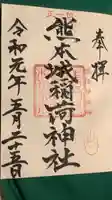 奉拝
熊本城稲荷神社
令和元年五月二十五日